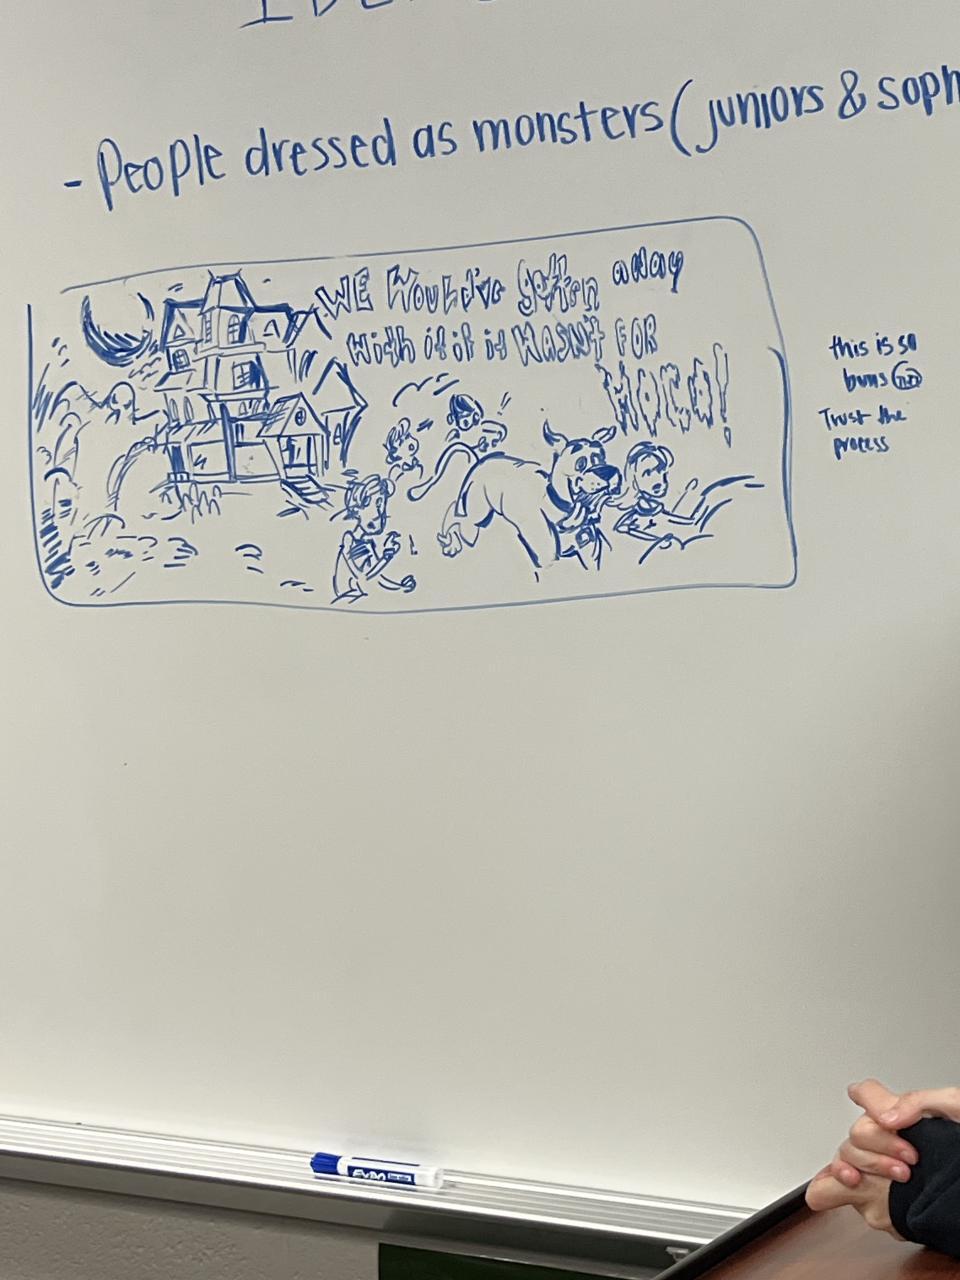 - People dressed as monsters (juniors & soph
WE Would've gotten away
with it if it WASN'T FOR
HOCO!
this is so
buns
Trust the
process
EXPO